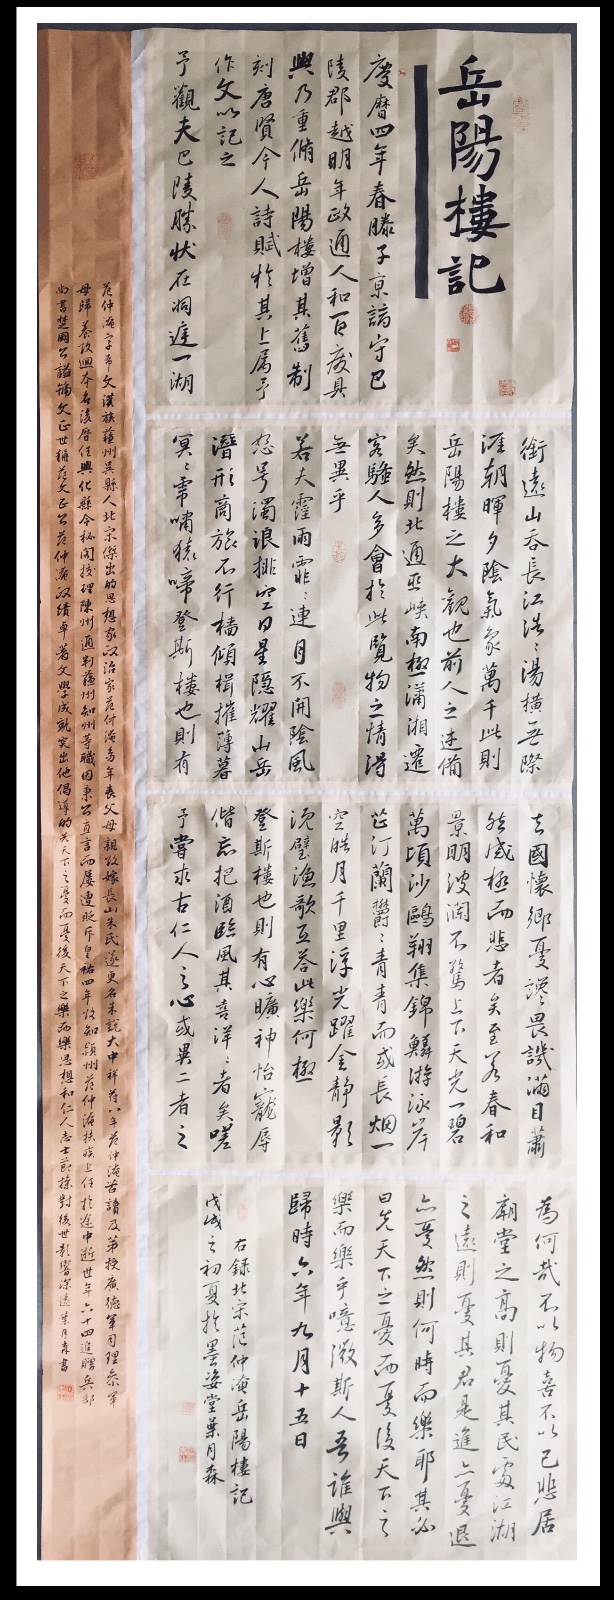 岳陽樓記
慶曆四年春滕子京謫守巴
陵郡越明年政通人和百廢具
興乃重脩岳陽樓增其舊制
刻唐賢今人詩賦於其上属予
作文以記之
予觀夫巴陵勝狀在洞庭一湖
銜遠山吞長江浩〻湯橫無際
涯朝暉夕陰氣象萬千此則
岳陽樓之大觀也前人之述備
矣然則北通巫峽南極瀟湘遷
客騷人多會於此覽物之情得
無異乎
若夫霪雨霏〻連月不開陰風
怒号濁浪排空日星隱耀山岳
潛形商旅不行檣傾楫摧薄暮
冥〻虎嘯猿啼登斯樓也則有
去國懷鄉憂讒畏譏滿目蕭
然感極而悲者矣至若春和
景明波瀾不驚上下天光一碧
萬頃沙鷗翔集錦鱗游泳岸
芷汀蘭鬱〻青青而或長烟一
空皓月千里浮光躍金靜影
沉璧漁歌互答此樂何極
登斯樓也則有心曠神怡寵辱
偕忘把酒臨風其喜洋〻者矣嗟
予嘗求古仁人之心或異二者之
為何哉不以物喜不以己悲居
廟堂之高則憂其民處江湖
之遠則憂其君是進亦憂退
亦憂然則何時而樂耶其必
曰先天下之憂而憂後天下之
樂而樂乎噫微斯人吾誰與
歸時六年九月十五日
右録北宋范仲淹岳陽樓記
戊戌之初夏於墨姿堂葉月森
范仲淹字希文漢族蘇州吳縣人北宋傑出的思想家政治家范仲淹多年喪父母親改嫁長山朱氏遂更名朱說大中祥符八年范仲淹苦讀及第授廣德軍司理參軍
母歸養改回本名後歷任興化縣令秘閣校理陳州通判蘇州知州等職因秉公直言而屢遭貶斥皇祐四年改知潁州范仲淹扶疾上任於途中逝世年六十四追贈兵部
尚書楚國公諡號文正世稱范文正公范仲淹政績卓著文學成就突出他倡導的先天下之憂而憂後天下之樂而樂思想和仁人志士節操對後世影響深遠葉月森書